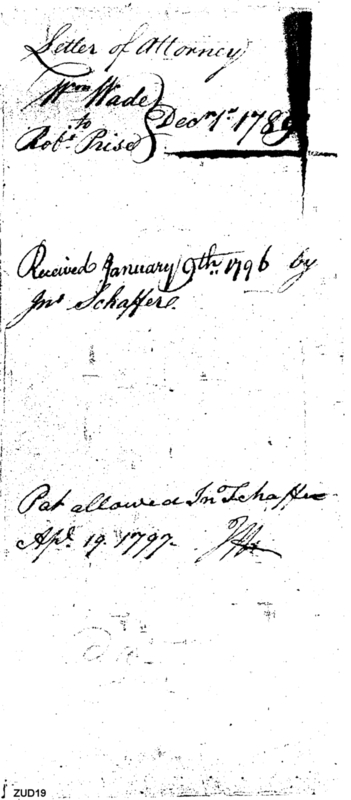 Letter of Attorney
Wm Wade
to
Robt Prise
Decr 1st 1789
Received January 9th 1796 by
Jno Schaffer.
Pat allowed Jn Schaffer
Apl 19 1797.
ZUD19